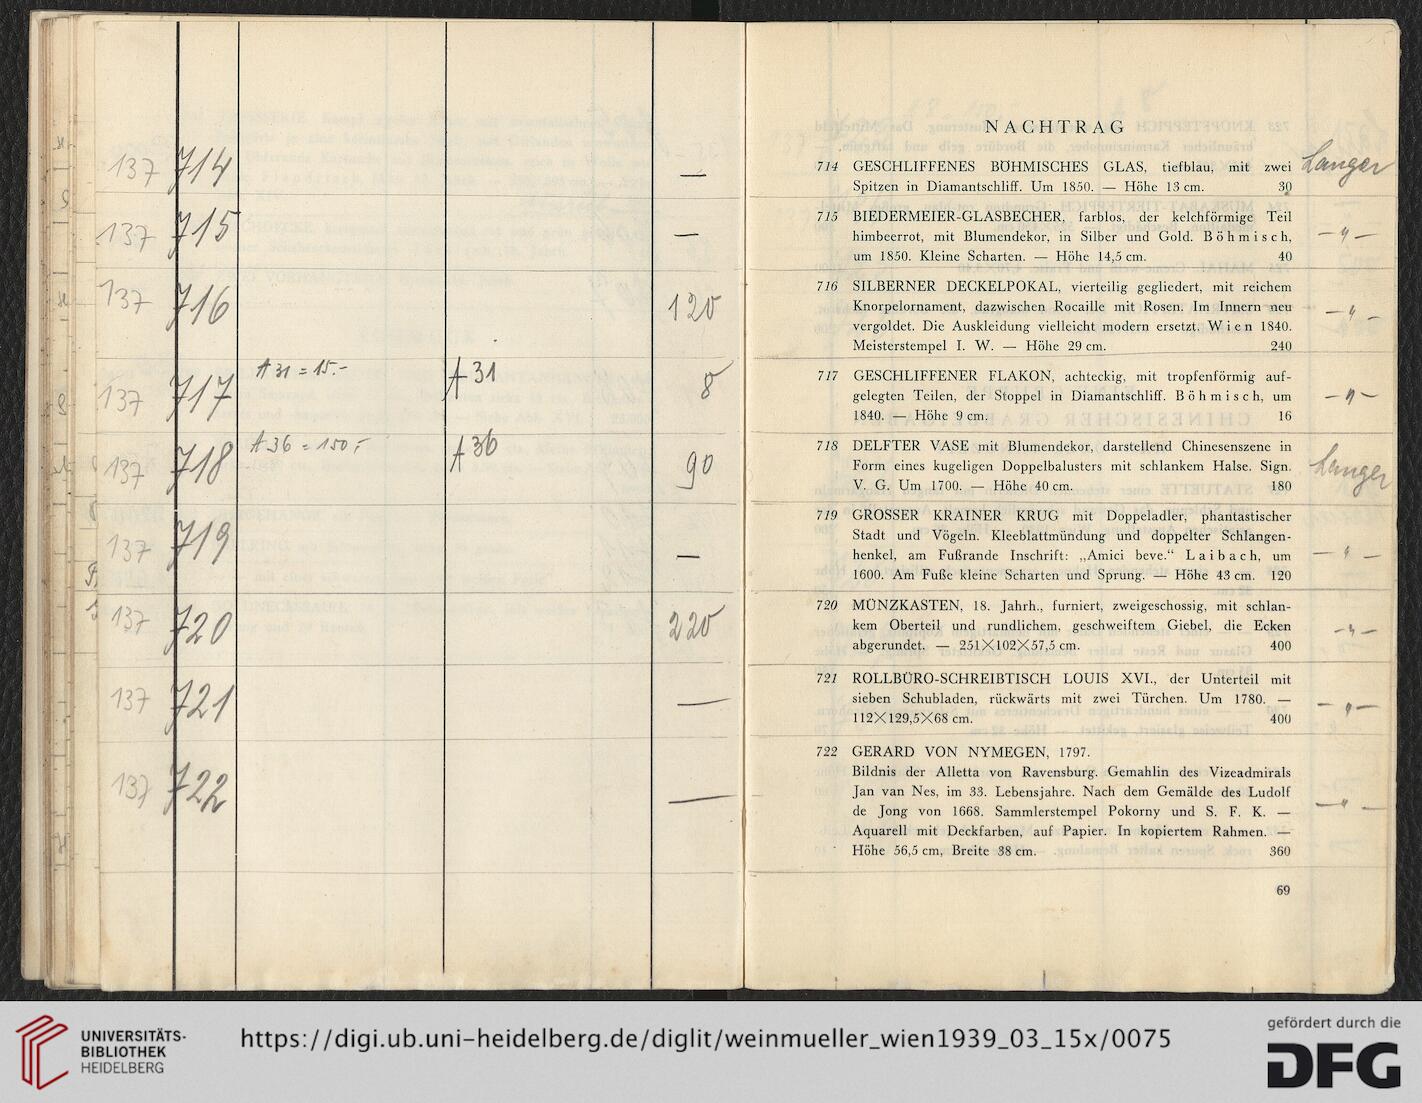 137 714 —
137 715 —
137 716 120
137 717 A 31 = 15.- A 31 8
137 718 A 36 = 150,- A 36 90
137 719 —
137 720 220
137 721 —
137 722 —
NACHTRAG
714 GESCHLIFFENES BÖHMISCHES GLAS, tiefblau, mit zwei Langer
Spitzen in Diamantschliff. Um 1850. — Höhe 13 cm. 30
715 BIEDERMEIER-GLASBECHER, farblos, der kelchförmige Teil
himbeerrot, mit Blumendekor, in Silber und Gold. Böhmisch, – " –
um 1850. Kleine Scharten. — Höhe 14,5 cm. 40
716 SILBERNER DECKELPOKAL, vierteilig gegliedert, mit reichem
Knorpelornament, dazwischen Rocaille mit Rosen. Im Innern neu – " –
vergoldet. Die Auskleidung vielleicht modern ersetzt. Wien 1840.
Meisterstempel I. W. — Höhe 29 cm. 240
717 GESCHLIFFENER FLAKON, achteckig, mit tropfenförmig auf-
gelegten Teilen, der Stoppel in Diamantschliff. Böhmisch, um – " –
1840. — Höhe 9 cm. 16
718 DELFTER VASE mit Blumendekor, darstellend Chinesenszene in
Form eines kugeligen Doppelbalusters mit schlankem Halse. Sign. Langer
V. G. Um 1700. — Höhe 40 cm. 180
719 GROSSER KRAINER KRUG mit Doppeladler, phantastischer
Stadt und Vögeln. Kleeblattmündung und doppelter Schlangen-
henkel, am Fußrande Inschrift: „Amici beve.“ Laibach, um – " –
1600. Am Fuße kleine Scharten und Sprung. — Höhe 43 cm. 120
720 MÜNZKASTEN, 18. Jahrh., furniert, zweigeschossig, mit schlan-
kem Oberteil und rundlichem, geschweiftem Giebel, die Ecken – " –
abgerundet. — 251×102×57,5 cm. 400
721 ROLLBÜRO-SCHREIBTISCH LOUIS XVI., der Unterteil mit
sieben Schubladen, rückwärts mit zwei Türchen. Um 1780. — – " –
112×129,5×68 cm. 400
722 GERARD VON NYMEGEN, 1797.
Bildnis der Alletta von Ravensburg. Gemahlin des Vizeadmirals
Jan van Nes, im 33. Lebensjahre. Nach dem Gemälde des Ludolf
de Jong von 1668. Sammlerstempel Pokorny und S. F. K. — – " –
Aquarell mit Deckfarben, auf Papier. In kopiertem Rahmen. —
Höhe 56,5 cm, Breite 38 cm. 360
69
UNIVERSITÄTS-
BIBLIOTHEK
HEIDELBERG
https://digi.ub.uni-heidelberg.de/diglit/weinmueller_wien1939_03_15x/0075
gefördert durch die
DFG